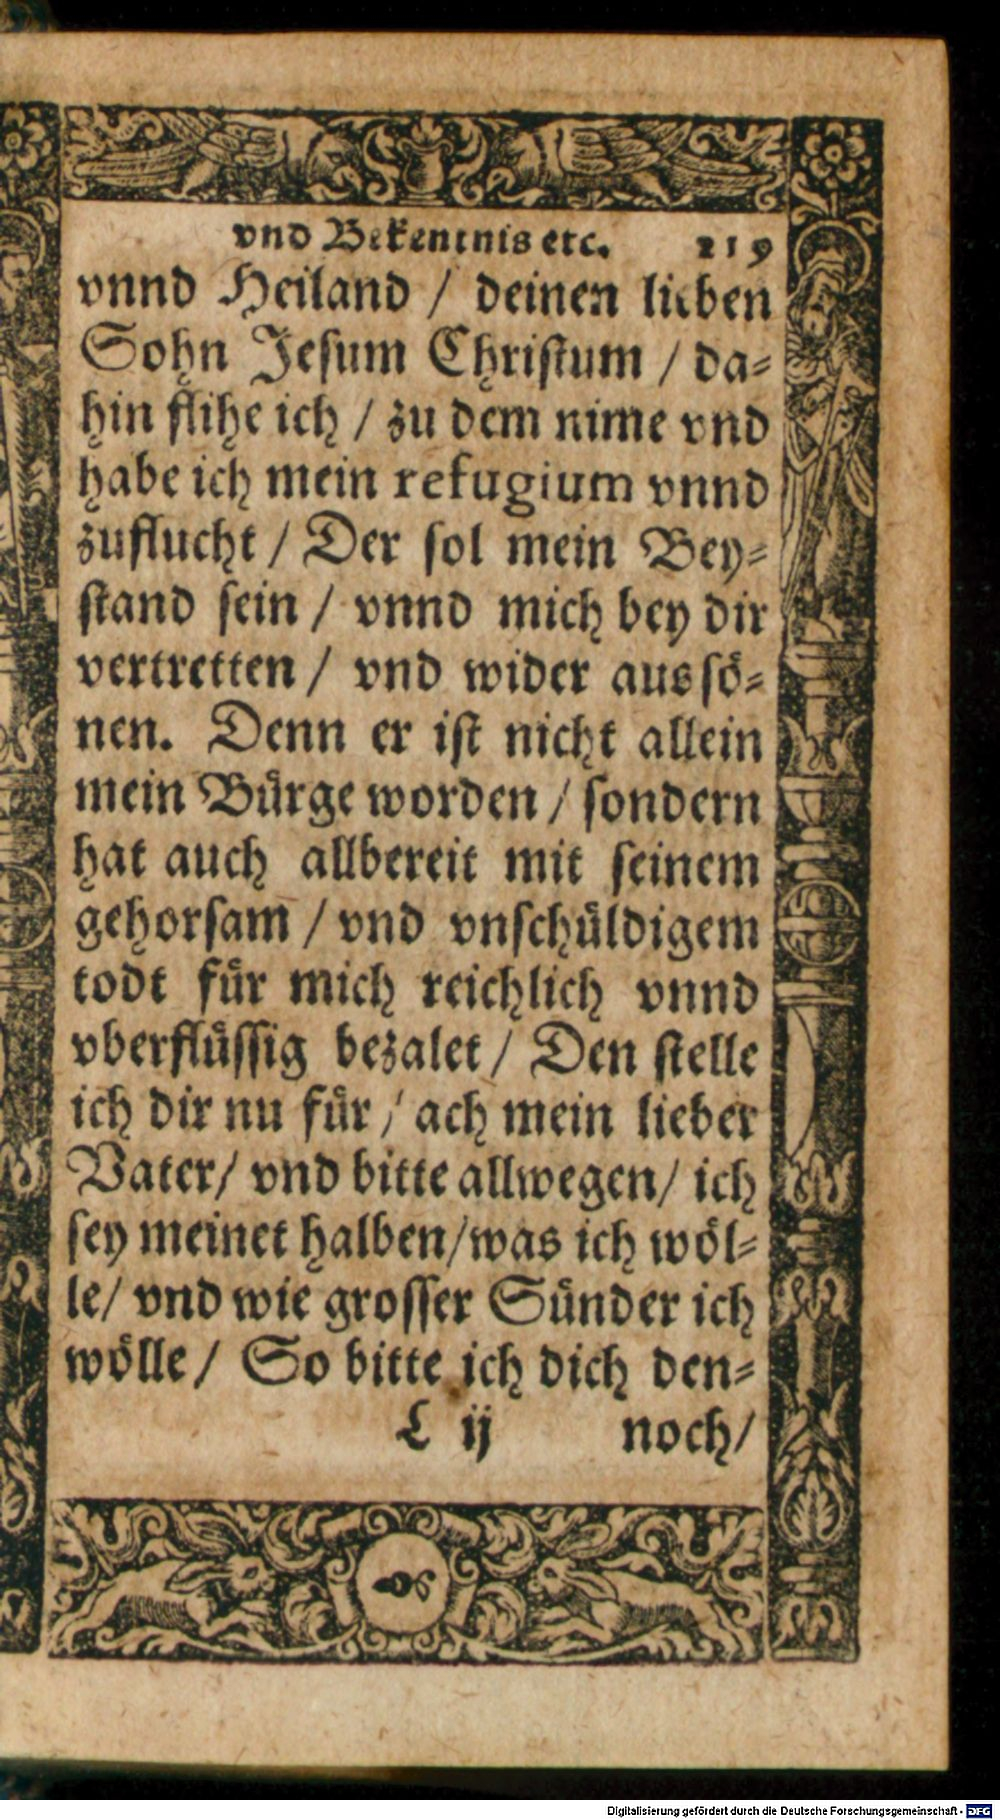 vnd Bekentnis etc. 219
vnnd Heiland / deinen lieben
Sohn Jeſum Chriſtum / da⸗
hin flihe ich / zu dem nime vnd
habe ich mein refugium vnnd
zuflucht / Der ſol mein Bey⸗
ſtand ſein / vnnd mich bey dir
vertretten / vnd wider ausſoͤ⸗
nen. Denn er iſt nicht allein
mein Buͤrge worden / ſondern
hat auch allbereit mit ſeinem
gehorſam / vnd vnſchuͤldigem
todt fuͤr mich reichlich vnnd
vberfluͤſſig bezalet / Den ſtelle
ich dir nu fuͤr / ach mein lieber
Vater / vnd bitte allwegen / ich
ſey meinet halben / was ich woͤl⸗
le / vnd wie groſſer Suͤnder ich
woͤlle / So bitte ich dich den⸗
L ij noch /
Digitalisierung gefördert durch die Deutsche Forschungsgemeinschaft - DFG